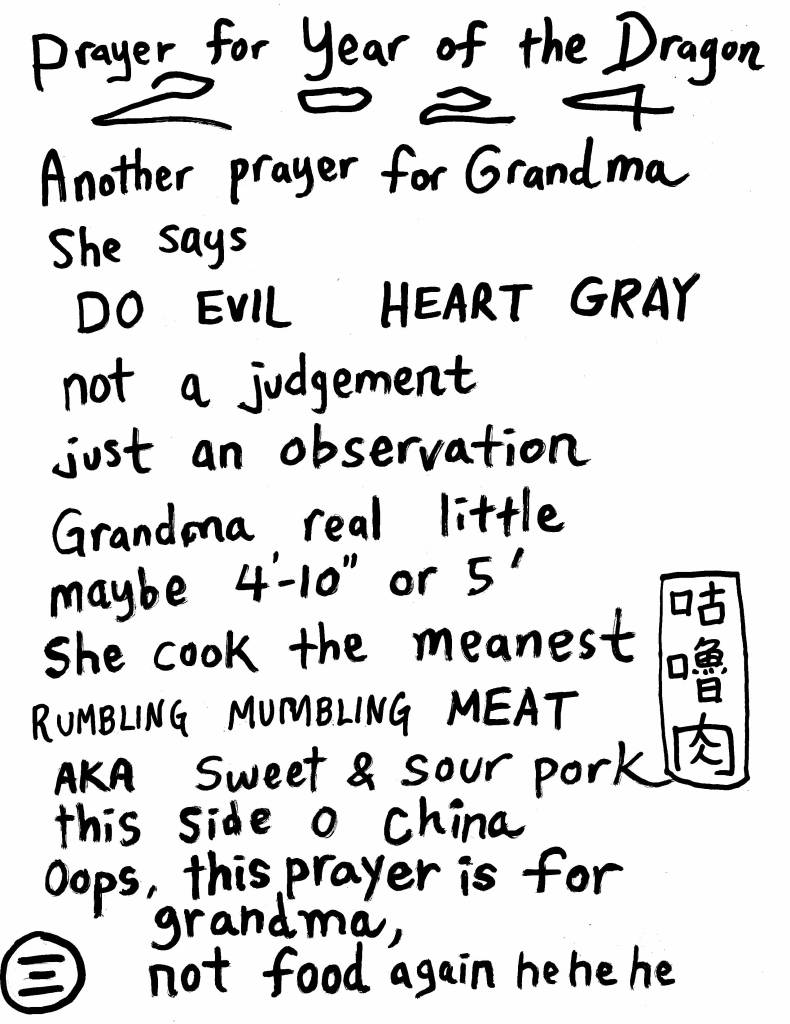 Prayer for Year of the Dragon
2024
Another prayer for Grandma
She says
DO EVIL HEART GRAY
not a judgement
just an observation
Grandma real little
maybe 4'-10" or 5'
She cook the meanest
RUMBLING MUMBLING MEAT
AKA Sweet & sour pork
咕嚕肉
this side o China
Oops, this prayer is for
grandma,
not food again he he he
三